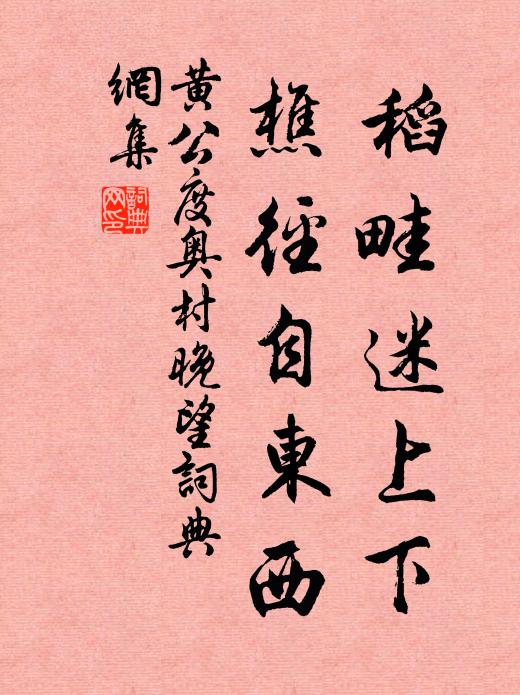 稻畦迷上下
樵徑自東西
黃公度奥村晚望詞典
網集
詞典
网印